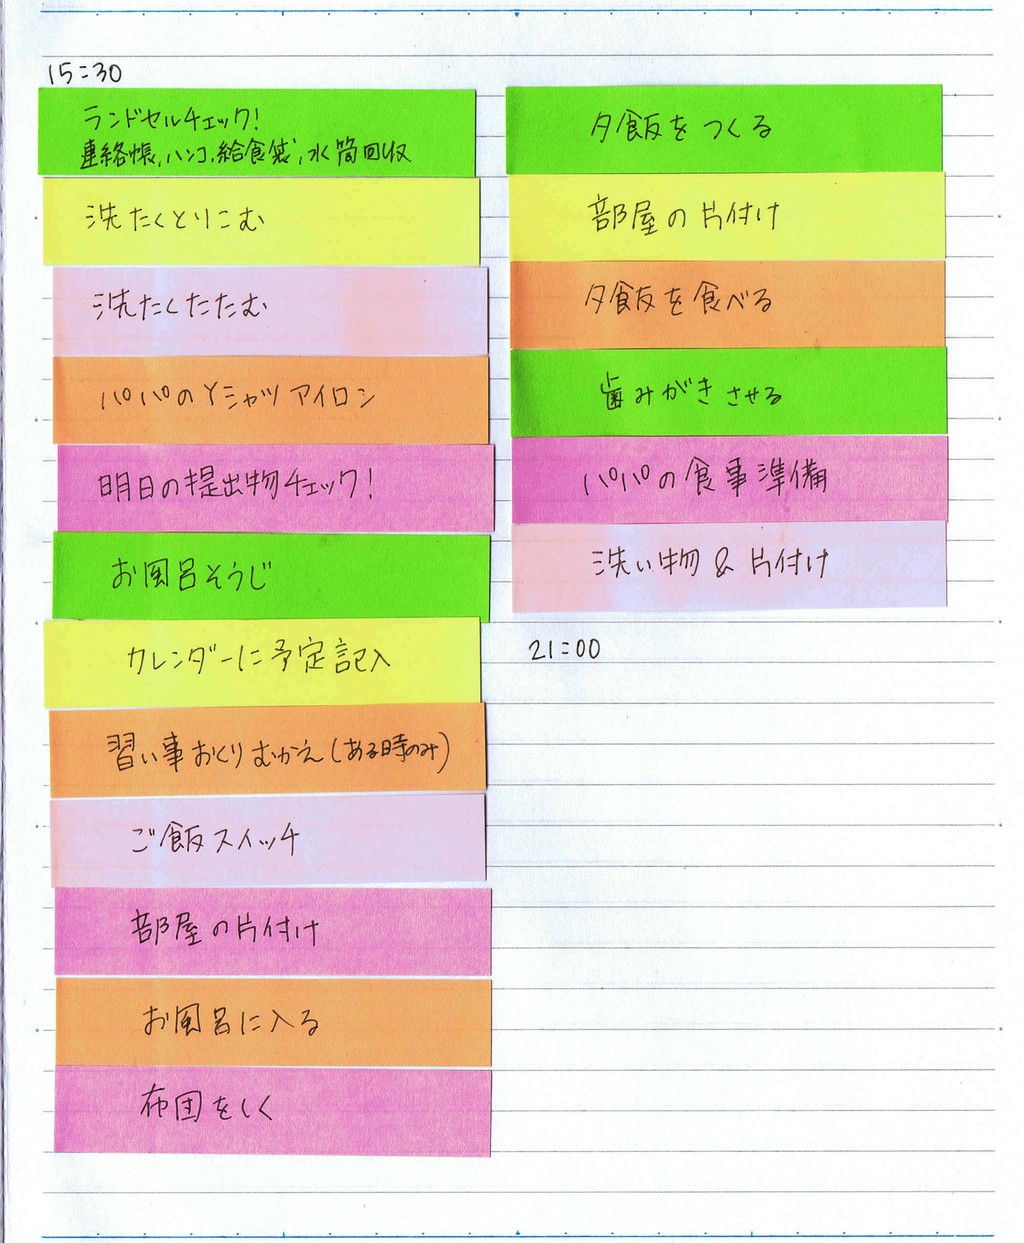 15:30
ランドセルチェック!
連絡帳,ハンコ,給食袋,水筒回収
洗たくとりこむ
洗たくたたむ
パパのYシャツアイロン
明日の提出物チェック!
お風呂そうじ
カレンダーに予定記入
習い事おくりむかえ(ある時のみ)
ご飯スイッチ
部屋の片付け
お風呂に入る
布団をしく
夕飯をつくる
部屋の片付け
夕飯を食べる
歯みがきさせる
パパの食事準備
洗い物&片付け
21:00